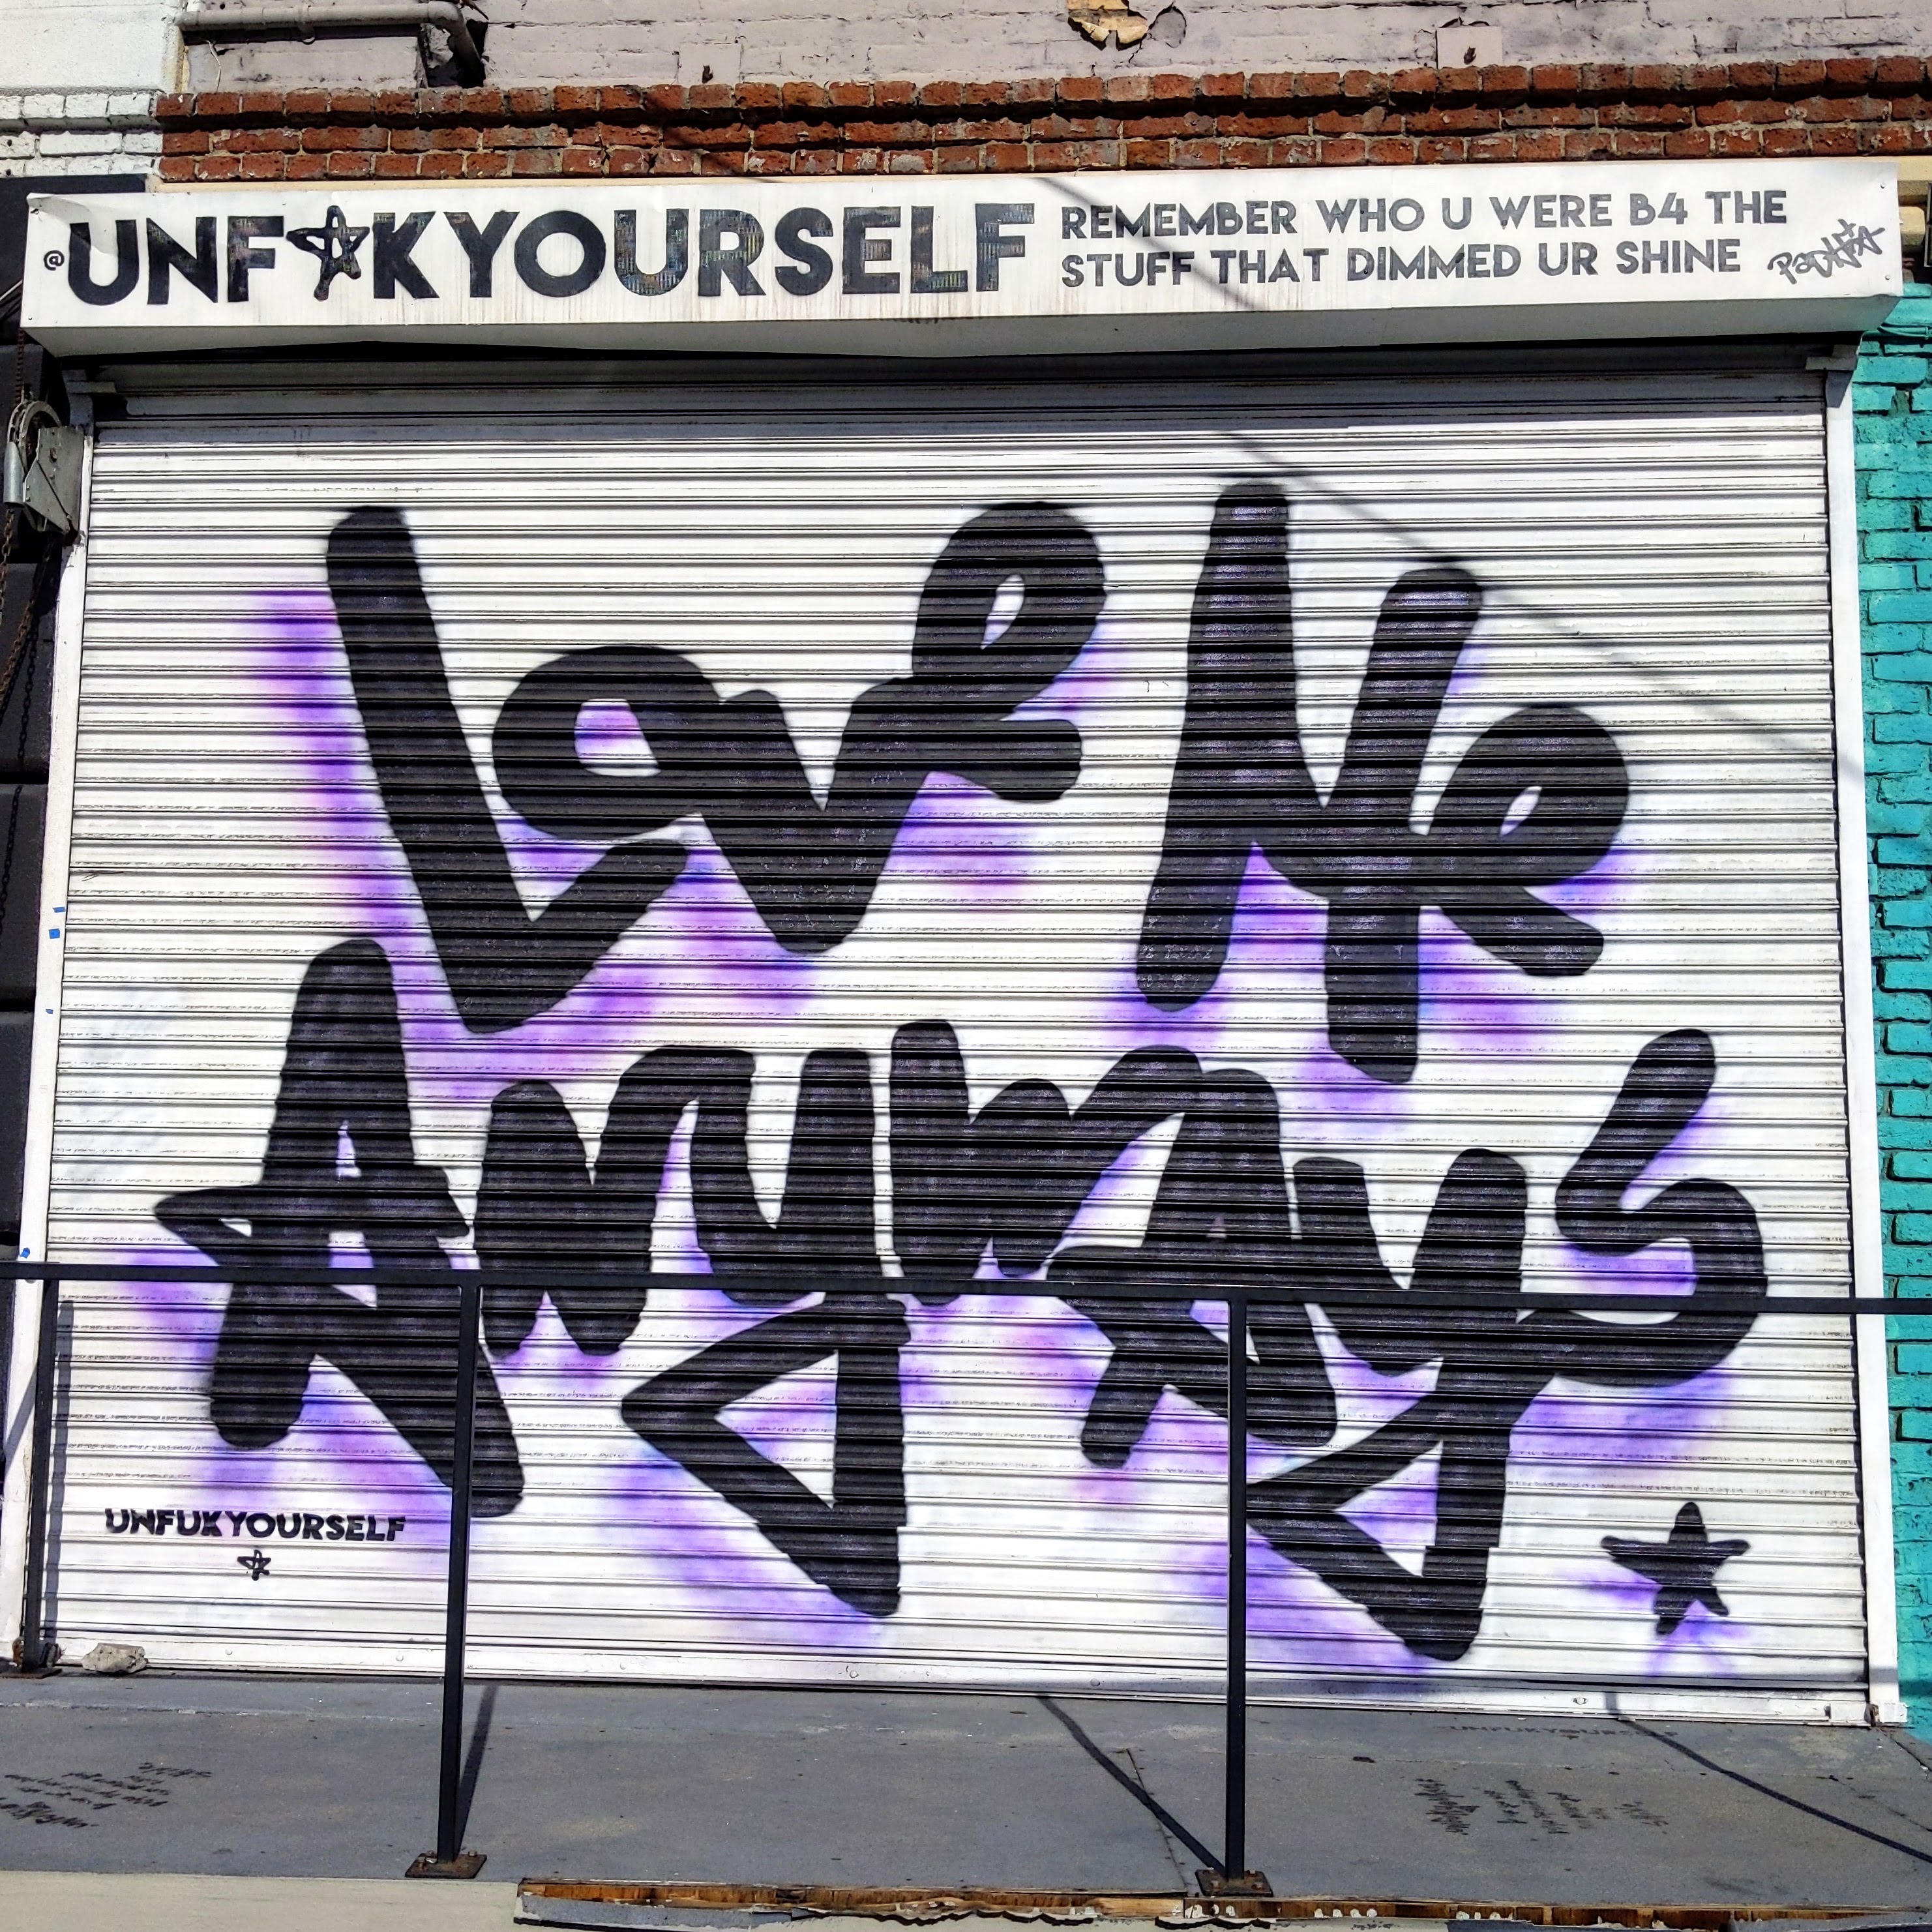 @UNF☆KYOURSELF
REMEMBER WHO U WERE B4 THE
STUFF THAT DIMMED UR SHINE
Love Me
Anyways
UNFUKYOURSELF
UNFUKYOURSELF